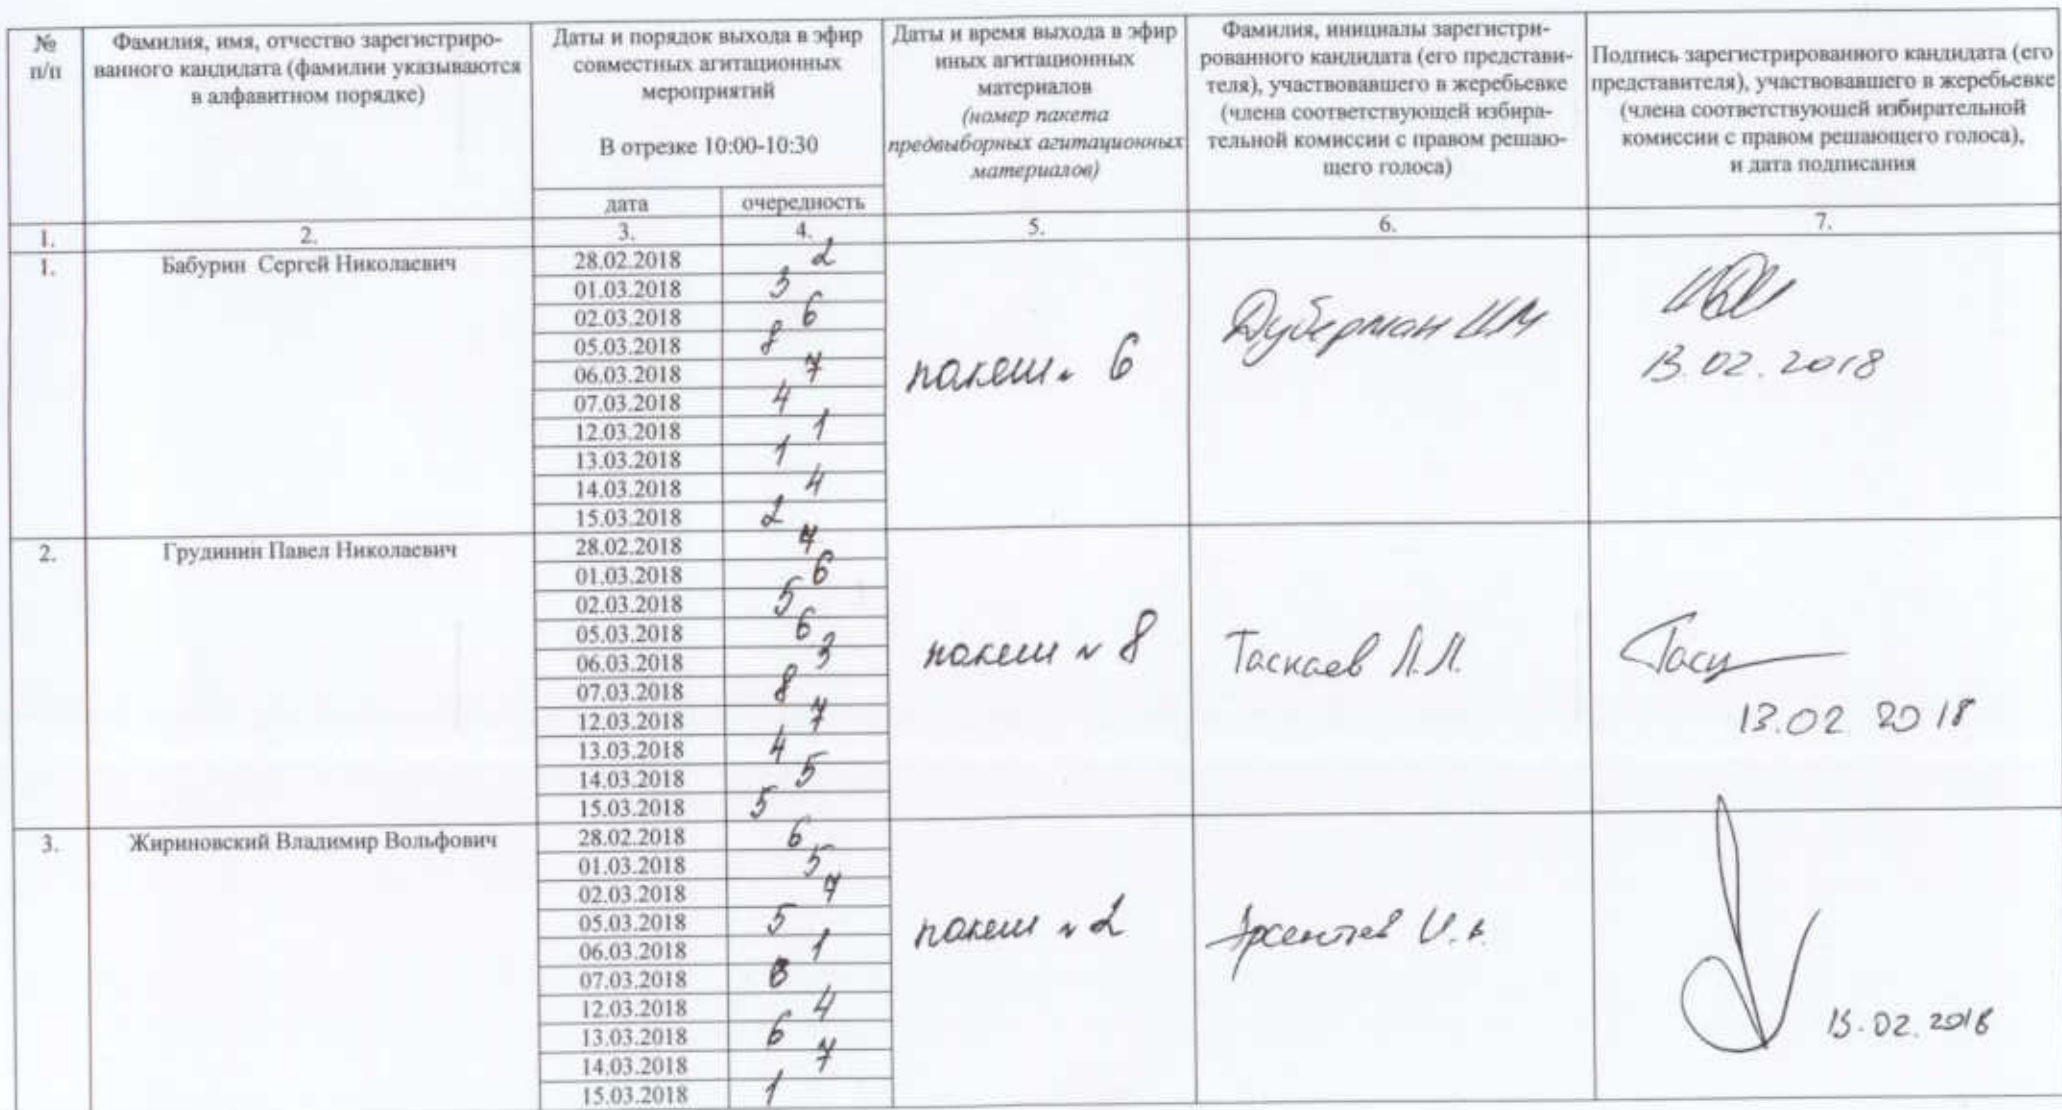 № п/п
Фамилия, имя, отчество зарегистриро-
ванного кандидата (фамилии указываются
в алфавитном порядке)
Даты и порядок выхода в эфир
совместных агитационных
мероприятий
В отрезке 10:00-10:30
дата
очередность
Даты и время выхода в эфир
иных агитационных
материалов
(номер пакета
предвыборных агитационных
материалов)
Фамилия, инициалы зарегистри-
рованного кандидата (его представи-
теля), участвовавшего в жеребьевке
(члена соответствующей избира-
тельной комиссии с правом решаю-
щего голоса)
Подпись зарегистрированного кандидата (его
представителя), участвовавшего в жеребьевке
(члена соответствующей избирательной
комиссии с правом решающего голоса),
и дата подписания
1. 2. 3. 4. 5. 6. 7.
1. Бабурин Сергей Николаевич
28.02.2018 2
01.03.2018 3
02.03.2018 6
05.03.2018 8
06.03.2018 7
07.03.2018 4
12.03.2018 1
13.03.2018 1
14.03.2018 4
15.03.2018 2
пакет 6
Дуберман И.М
13.02.2018
2. Грудинин Павел Николаевич
28.02.2018
01.03.2018 6
02.03.2018 5
05.03.2018 6
06.03.2018 3
07.03.2018 8
12.03.2018 7
13.03.2018 4
14.03.2018 5
15.03.2018 5
пакет № 8
Таскаев Л.Л.
13.02 2018
3. Жириновский Владимир Вольфович
28.02.2018 6
01.03.2018 5
02.03.2018
05.03.2018 5
06.03.2018 1
07.03.2018
12.03.2018 4
13.03.2018 6
14.03.2018 7
15.03.2018 1
пакет № 2
Арсентьев
13.02.2018